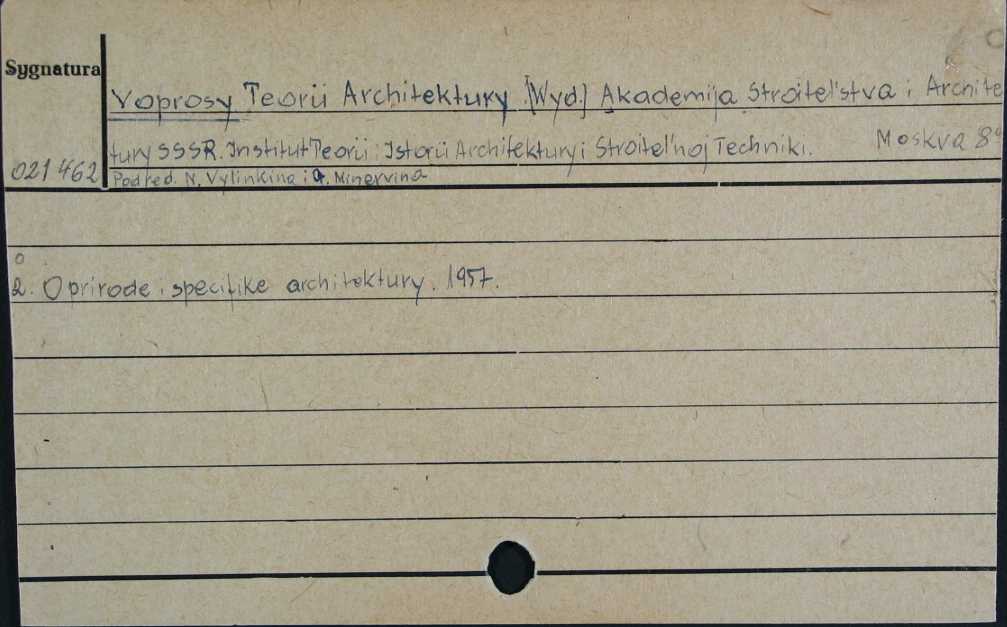 Sygnatura
Voprosy Teorii Architektury [Wyd.] Akademija Stroitel'stva i Archite
tury SSSR. Institut Teorii i Istorii Architektury i Stroitel'noj Techniki. Moskva 8°
021462 Pod red. N. Vylinkina i G. Minervina
0
2. O prirode i specifike architektury. 1957.